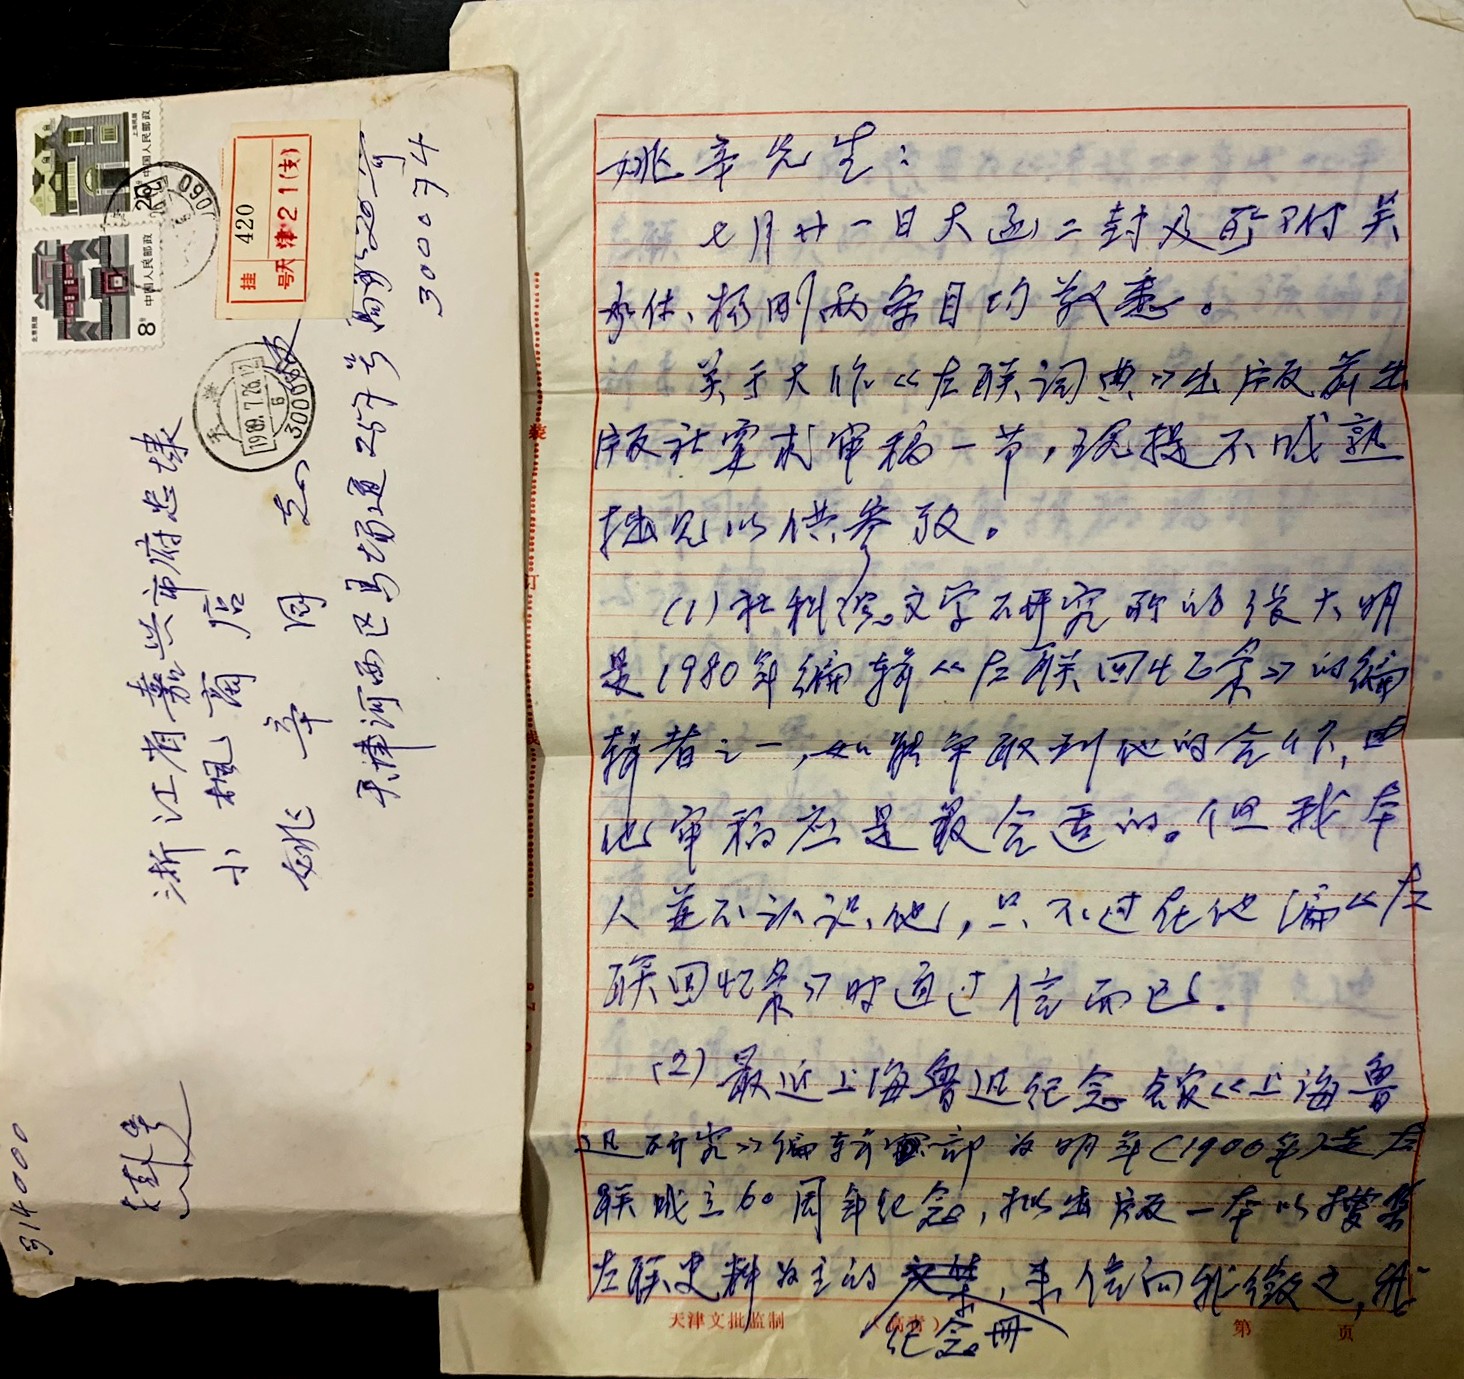 姚辛先生：
七月廿一日大函二封及所附关
杨刚两条目均敬悉。
关于大作《左联词典》出版前出
版社要求审稿一节，现提不成熟
拙见以供参考。
(1)社科院文学研究所的张大明
是1980年编辑《左联回忆录》的编
辑者之一，如能争取到他的合作，由
他审稿应是最合适的。但我本
人并不认识他，只不过在他编《左
联回忆录》时通过信而已。
(2)最近上海鲁迅纪念馆《上海鲁
迅研究》编辑部为明年(1990年)是左
联成立60周年纪念，拟出版一本以搜集
左联史料为主的
纪念册
，来信向我征文，我
天津文批监制
第 页
装
订
线
浙江省嘉兴市府忠埭
小枫商店
姚辛 同志
天津河西区马场道257号
300074
314000
挂号
挂 420
号 天津21(支)
上海民居
20分
中国人民邮政
北京民居
8分
中国人民邮政
天津
1989.7.26.12